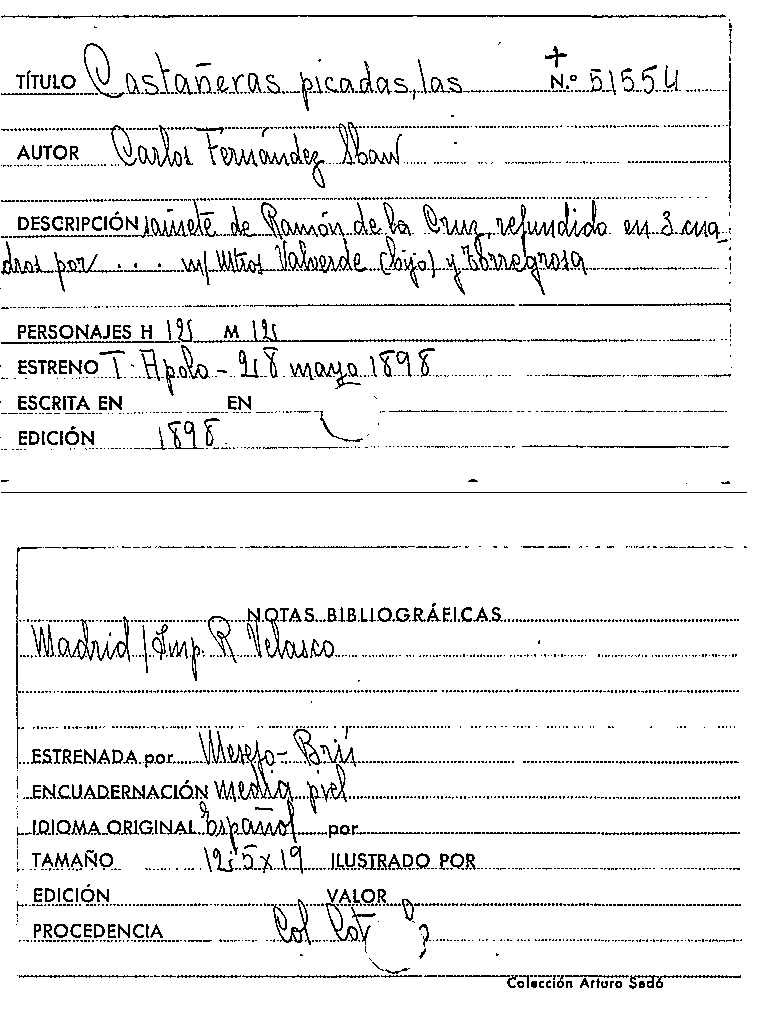 TÍTULO Castañeras picadas, las + N.º 51554
AUTOR Carlos Fernández Shaw
DESCRIPCIÓN sainete de Ramón de la Cruz, refundido en 3 cua-
dros por . . . m/ Mtros Valverde (hijo) y Torregrosa
PERSONAJES H 12 M 12
ESTRENO T. Apolo - 28 mayo 1898
ESCRITA EN EN
EDICIÓN 1898
NOTAS BIBLIOGRÁFICAS
Madrid / Imp. R Velasco
ESTRENADA por Mesejo - Brú
ENCUADERNACIÓN media piel
IDIOMA ORIGINAL Español por
TAMAÑO 12,5 x 19 ILUSTRADO POR
EDICIÓN VALOR
PROCEDENCIA Col
Colección Arturo Sedó